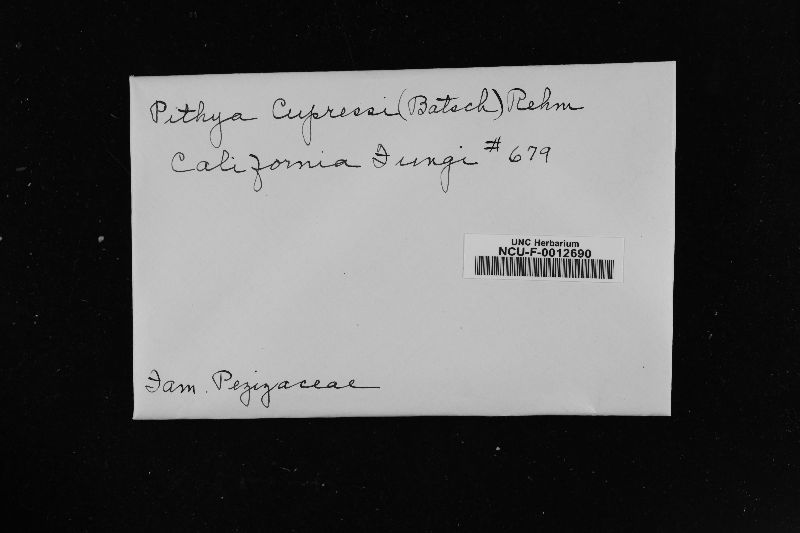 Pithya Cupressi (Batsch) Rehm
California Fungi #679
UNC Herbarium
NCU-F-0012690
Fam. Pezizaceae